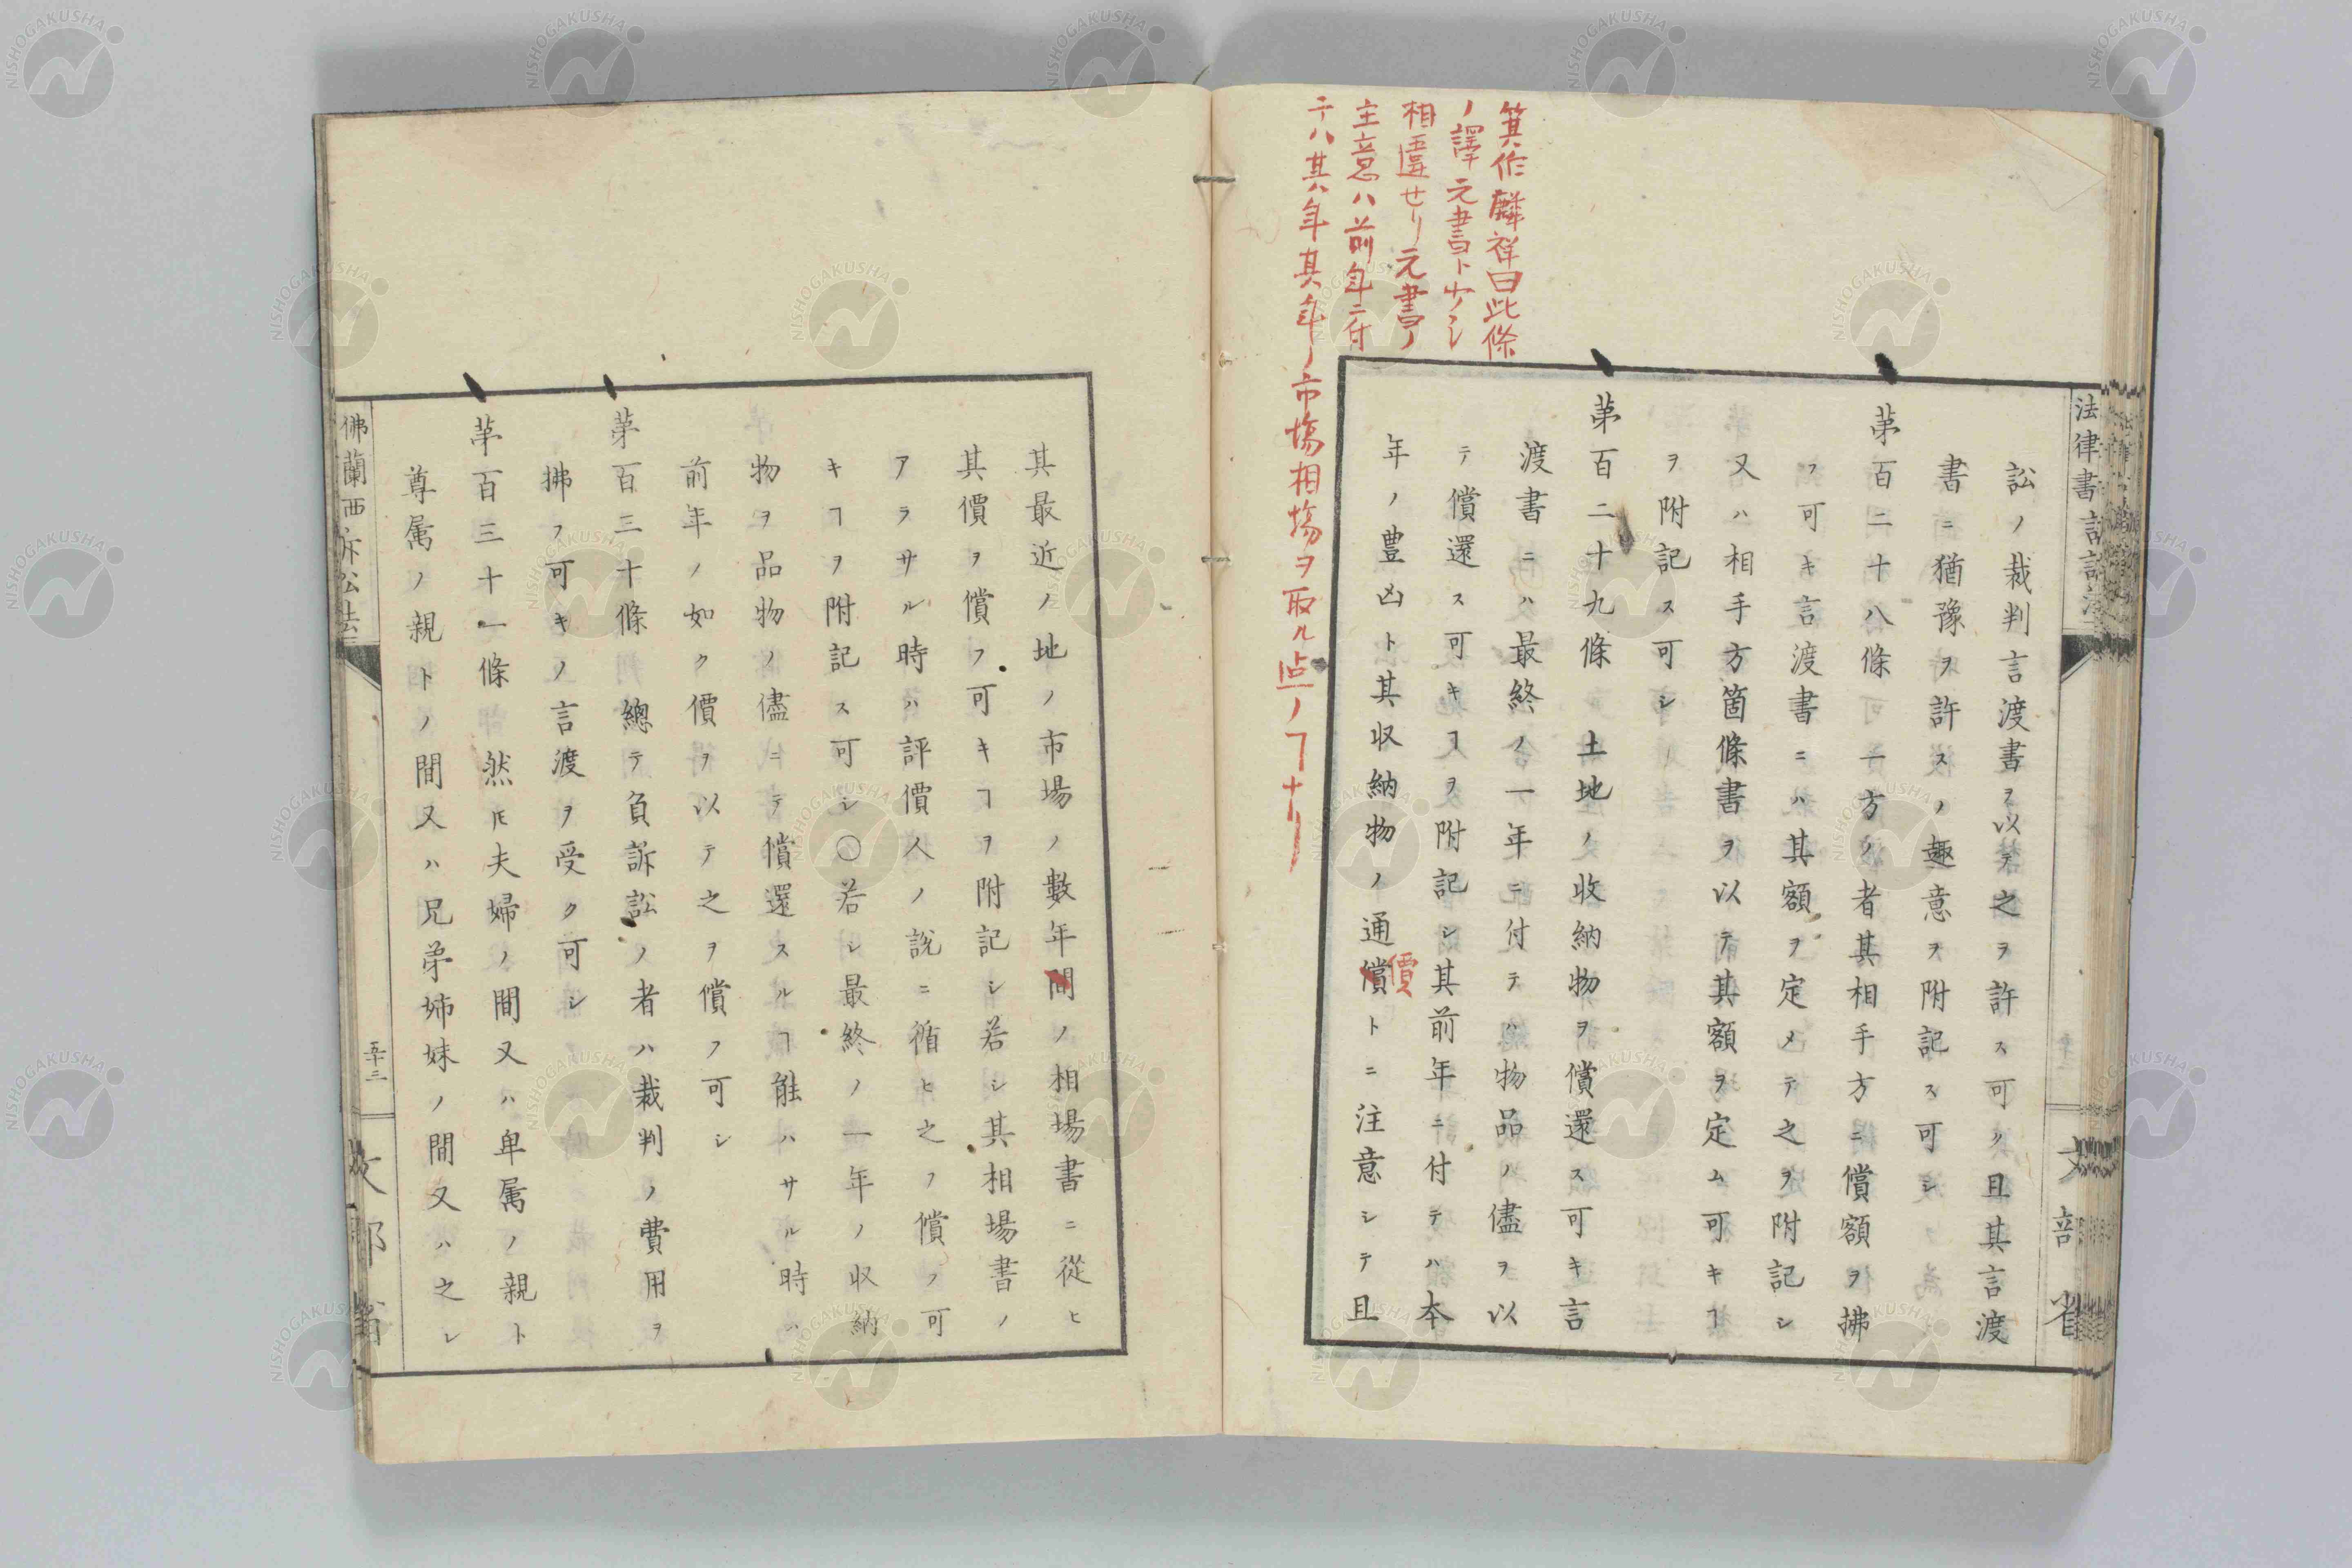 箕作麟祥曰此條
ノ譯元書ト少シ
相違せり元書ノ
主意ハ前年ニ付
テハ其年其年ノ市塲相塲ヲ取ル
法律書訴訟法
文部省
訟ノ裁判言渡書ヲ以テ之ヲ許ス可ク且其言渡
書ニ猶豫ヲ許スノ趣意ヲ附記ス可シ
第百二十八條 一方ノ者其相手方ニ償額ヲ拂
フ可キ言渡書ニハ其額ヲ定メテ之ヲ附記シ
又ハ相手方箇條書ヲ以テ其額ヲ定ム可キヿ
ヲ附記ス可シ
第百二十九條 土地ノ收納物ヲ償還ス可キ言
渡書ニハ最終ノ一年ニ付テハ物品ノ儘ヲ以
テ償還ス可キヿヲ附記シ其前年ニ付テハ本
年ノ豊凶ト其収納物ノ通償トニ注意シテ且
價
其最近ノ地ノ市場ノ數年間ノ相場書ニ從ヒ
其價ヲ償フ可キヿヲ附記シ若シ其相場書ノ
アラサル時ハ評價人ノ說ニ循ヒ之ヲ償フ可
キヿヲ附記ス可シ〇若シ最終ノ一年ノ収納
物ヲ品物ノ儘ニテ償還スルヿ能ハサル時ハ
前年ノ如ク價ヲ以テ之ヲ償フ可シ
第百三十條 總テ負訴訟ノ者ハ裁判ノ費用ヲ
拂フ可キノ言渡ヲ受ク可シ
第百三十一條 然𪜈夫婦ノ間又ハ卑属ノ親ト
尊属ノ親トノ間又ハ兄弟姉妹ノ間又ハ之レ
佛蘭西訴訟法
五十二
文部省